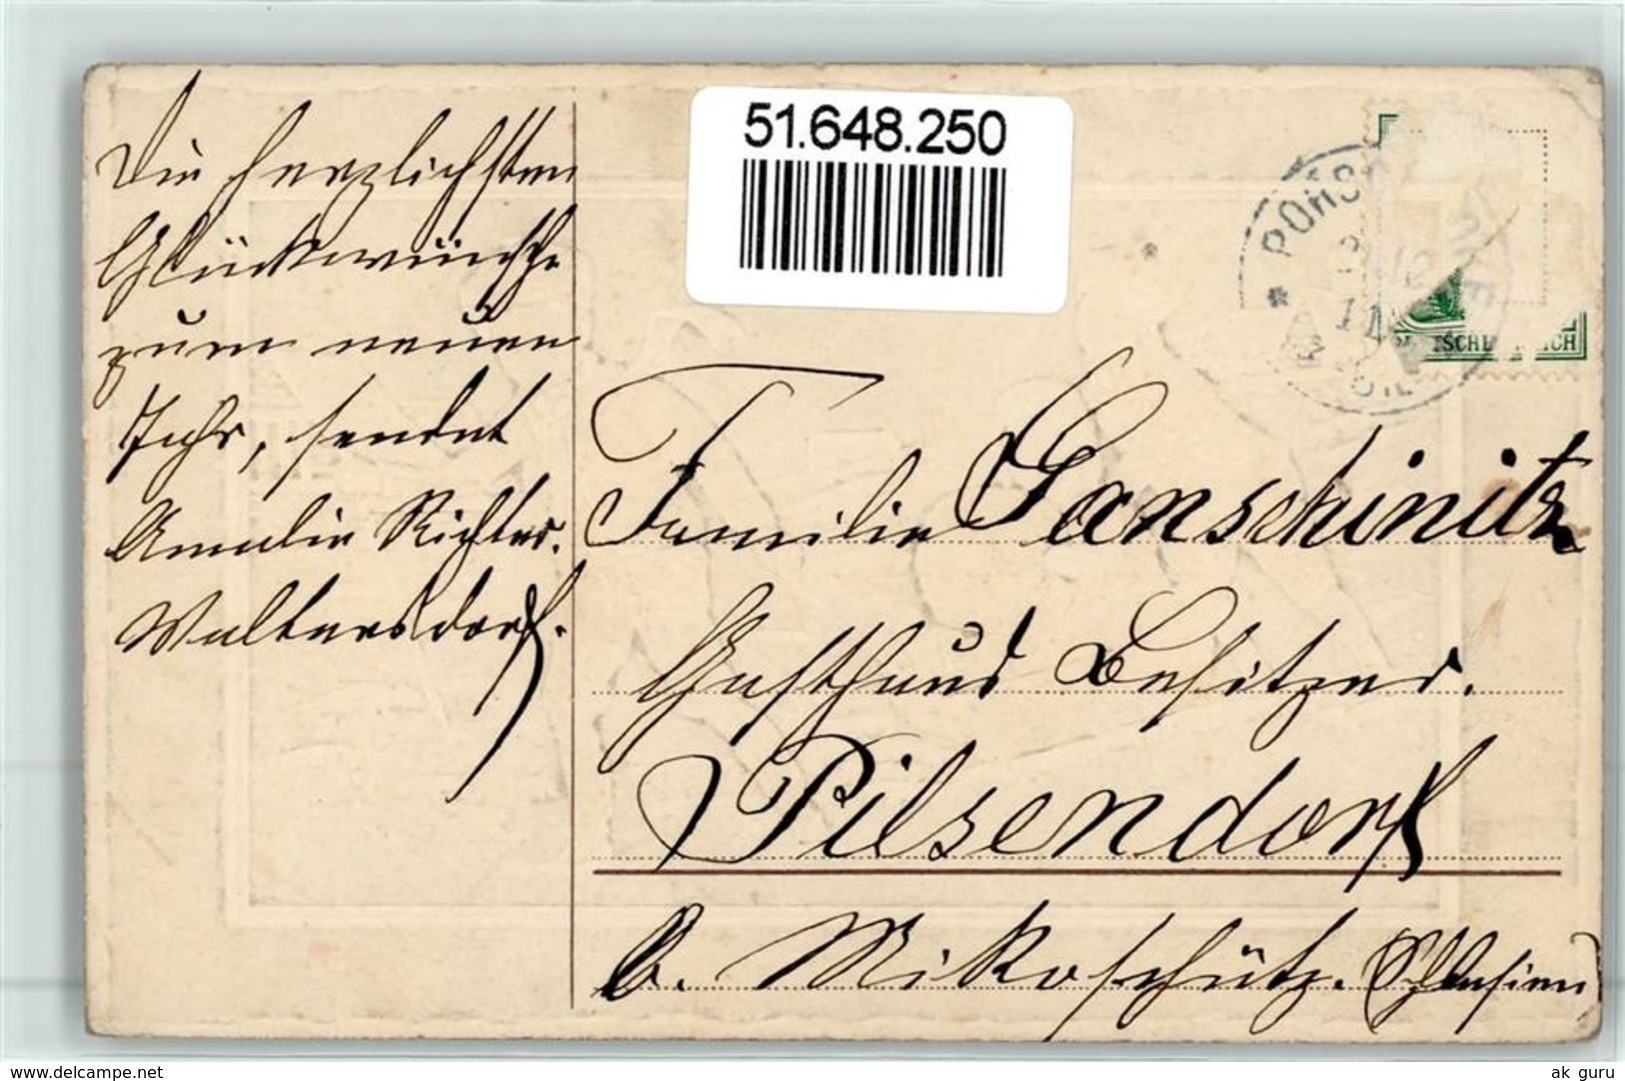 Die herzlichsten
Glückwünsche
zum neuen
Jahr, sendet
Amalie Richter.
Waltersdorf.
51.648.250
PORSC
12
Familie Ganschinitz
Gasthaus Besitzer.
Pilsendorf
b. Mikoschütz. Schlesien
www.delcampe.net
ak guru